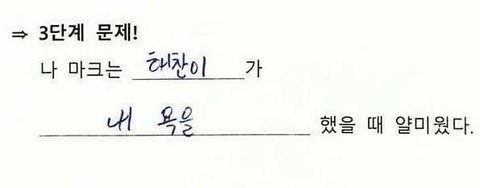 ⇒ 3단계 문제!
나 마크는 태찬이가
내 욕을 했을 때 얄미웠다.